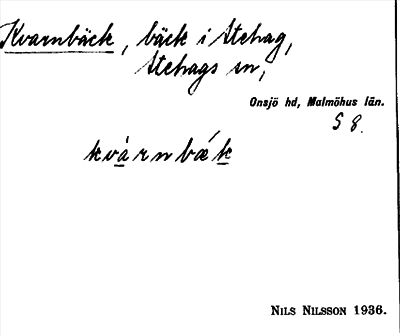 Kvarnbäck, bäck i Stehag,
Stehags sn,
Onsjö hd, Malmöhus län.
S 8.
kvàrnbǽk
NILS NILSSON 1936.